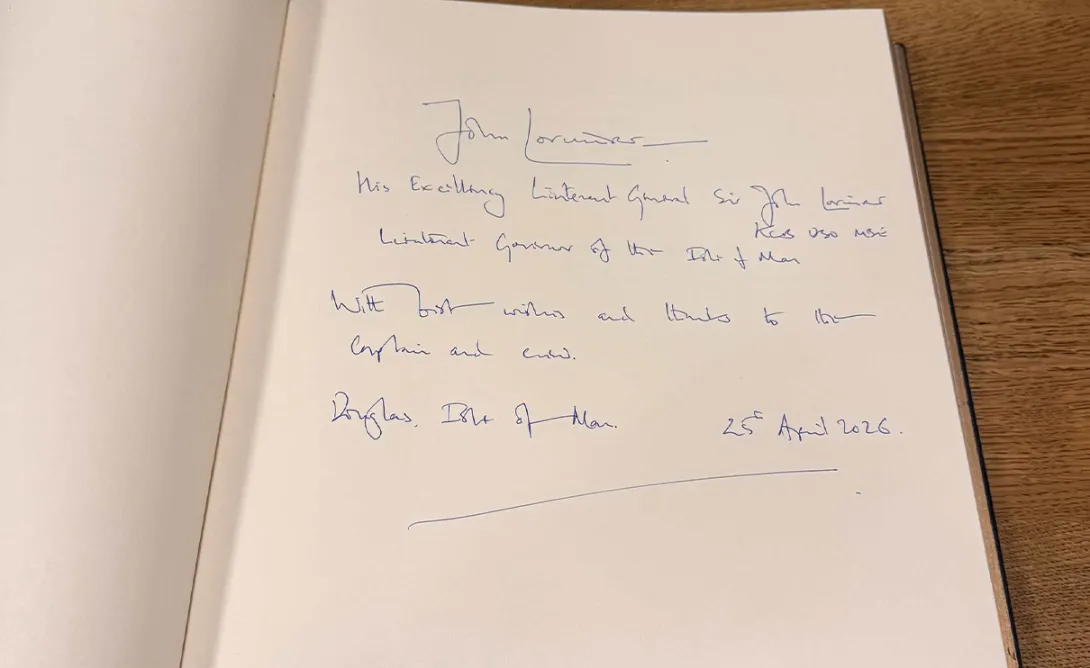 John Lorimer
His Excellency Lieutenant General Sir John Lorimer
KCB DSO MBE
Lieutenant Governor of the Isle of Man
With best wishes and thanks to the
Captain and crew.
Douglas, Isle of Man. 25th April 2026.